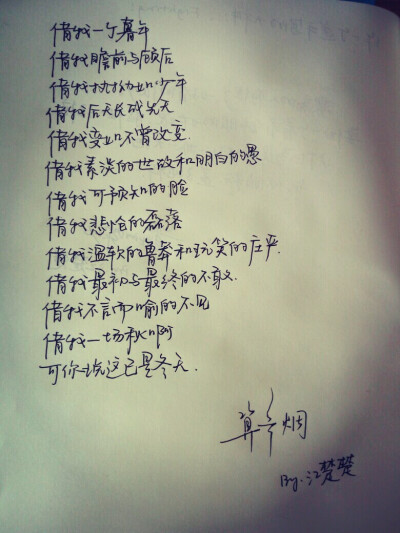 借我一个暮年
借我瞻前与顾后
借我执拗如少年
借我后天长成先天
借我变如不曾改变.
借我素淡的世故和明白的愚
借我可预知的脸
借我悲怆的磊落
借我温软的鲁莽和玩笑的庄严.
借我最初与最终的不敢.
借我不言而喻的不见
借我一场秋啊
可你说这已是冬天.
By.江楚楚